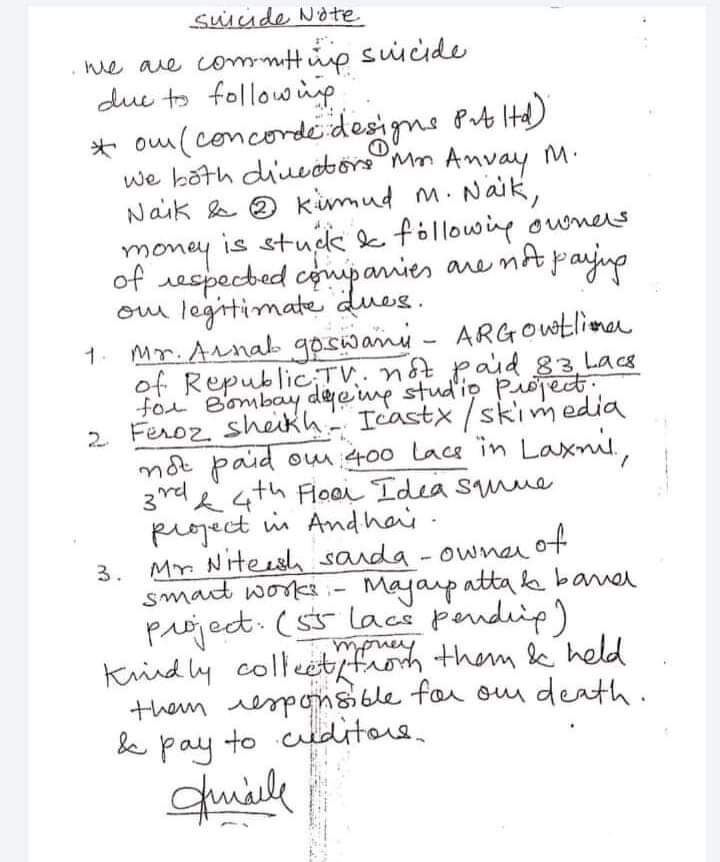 Suicide Note
we are committing suicide
due to following
* our (concorde designs Pvt ltd)
we both directors ① Mr Anvay M.
Naik & ② Kumud M. Naik,
money is stuck & following owners
of respected companies are not paying
our legitimate dues.
1. Mr. Arnab goswami - ARG Outlimer
of Republic TV. not paid 83 Lacs
for Bombay dyeing studio Project.
2 Feroz Sheikh - Icastx / skimedia
not paid our 400 Lacs in Laxmi,
3rd & 4th Floor Idea Square
project in Andheri.
3. Mr. Niteesh sarda - owner of
smart works :- Magarpatta & baner
project. (55 lacs pending)
Kindly collect money from them & held
them responsible for our death.
& pay to creditors.